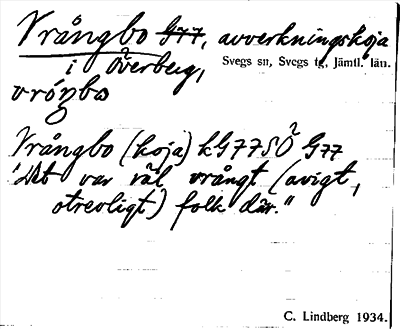 Vrångbo G77, avverkningskoja
i Överberg, Svegs sn, Svegs tg, Jämtl. län.
vróŋbo
Vrångbo (koja) k G77 SÖ G77
"Det var väl vrångt (avigt,
otrevligt) folk där."
C. Lindberg 1934.